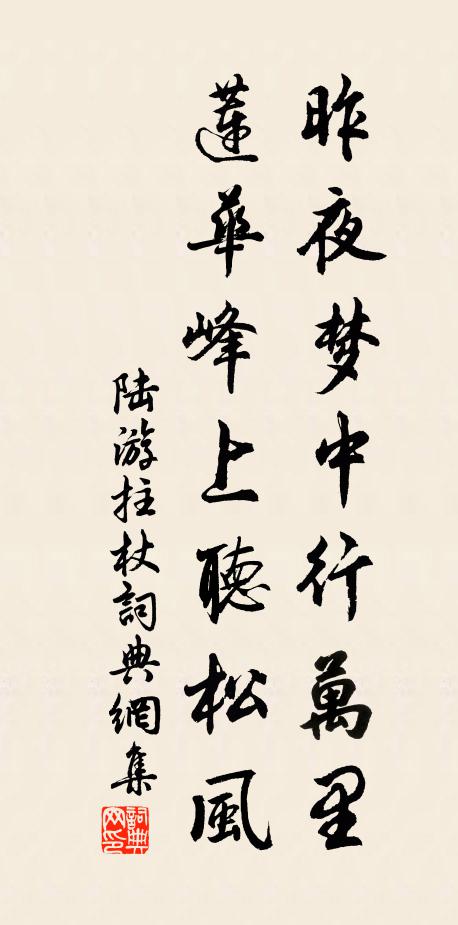 昨夜梦中行萬里
蓮華峰上聽松風
陆游拄杖詞典網集
詞典网印